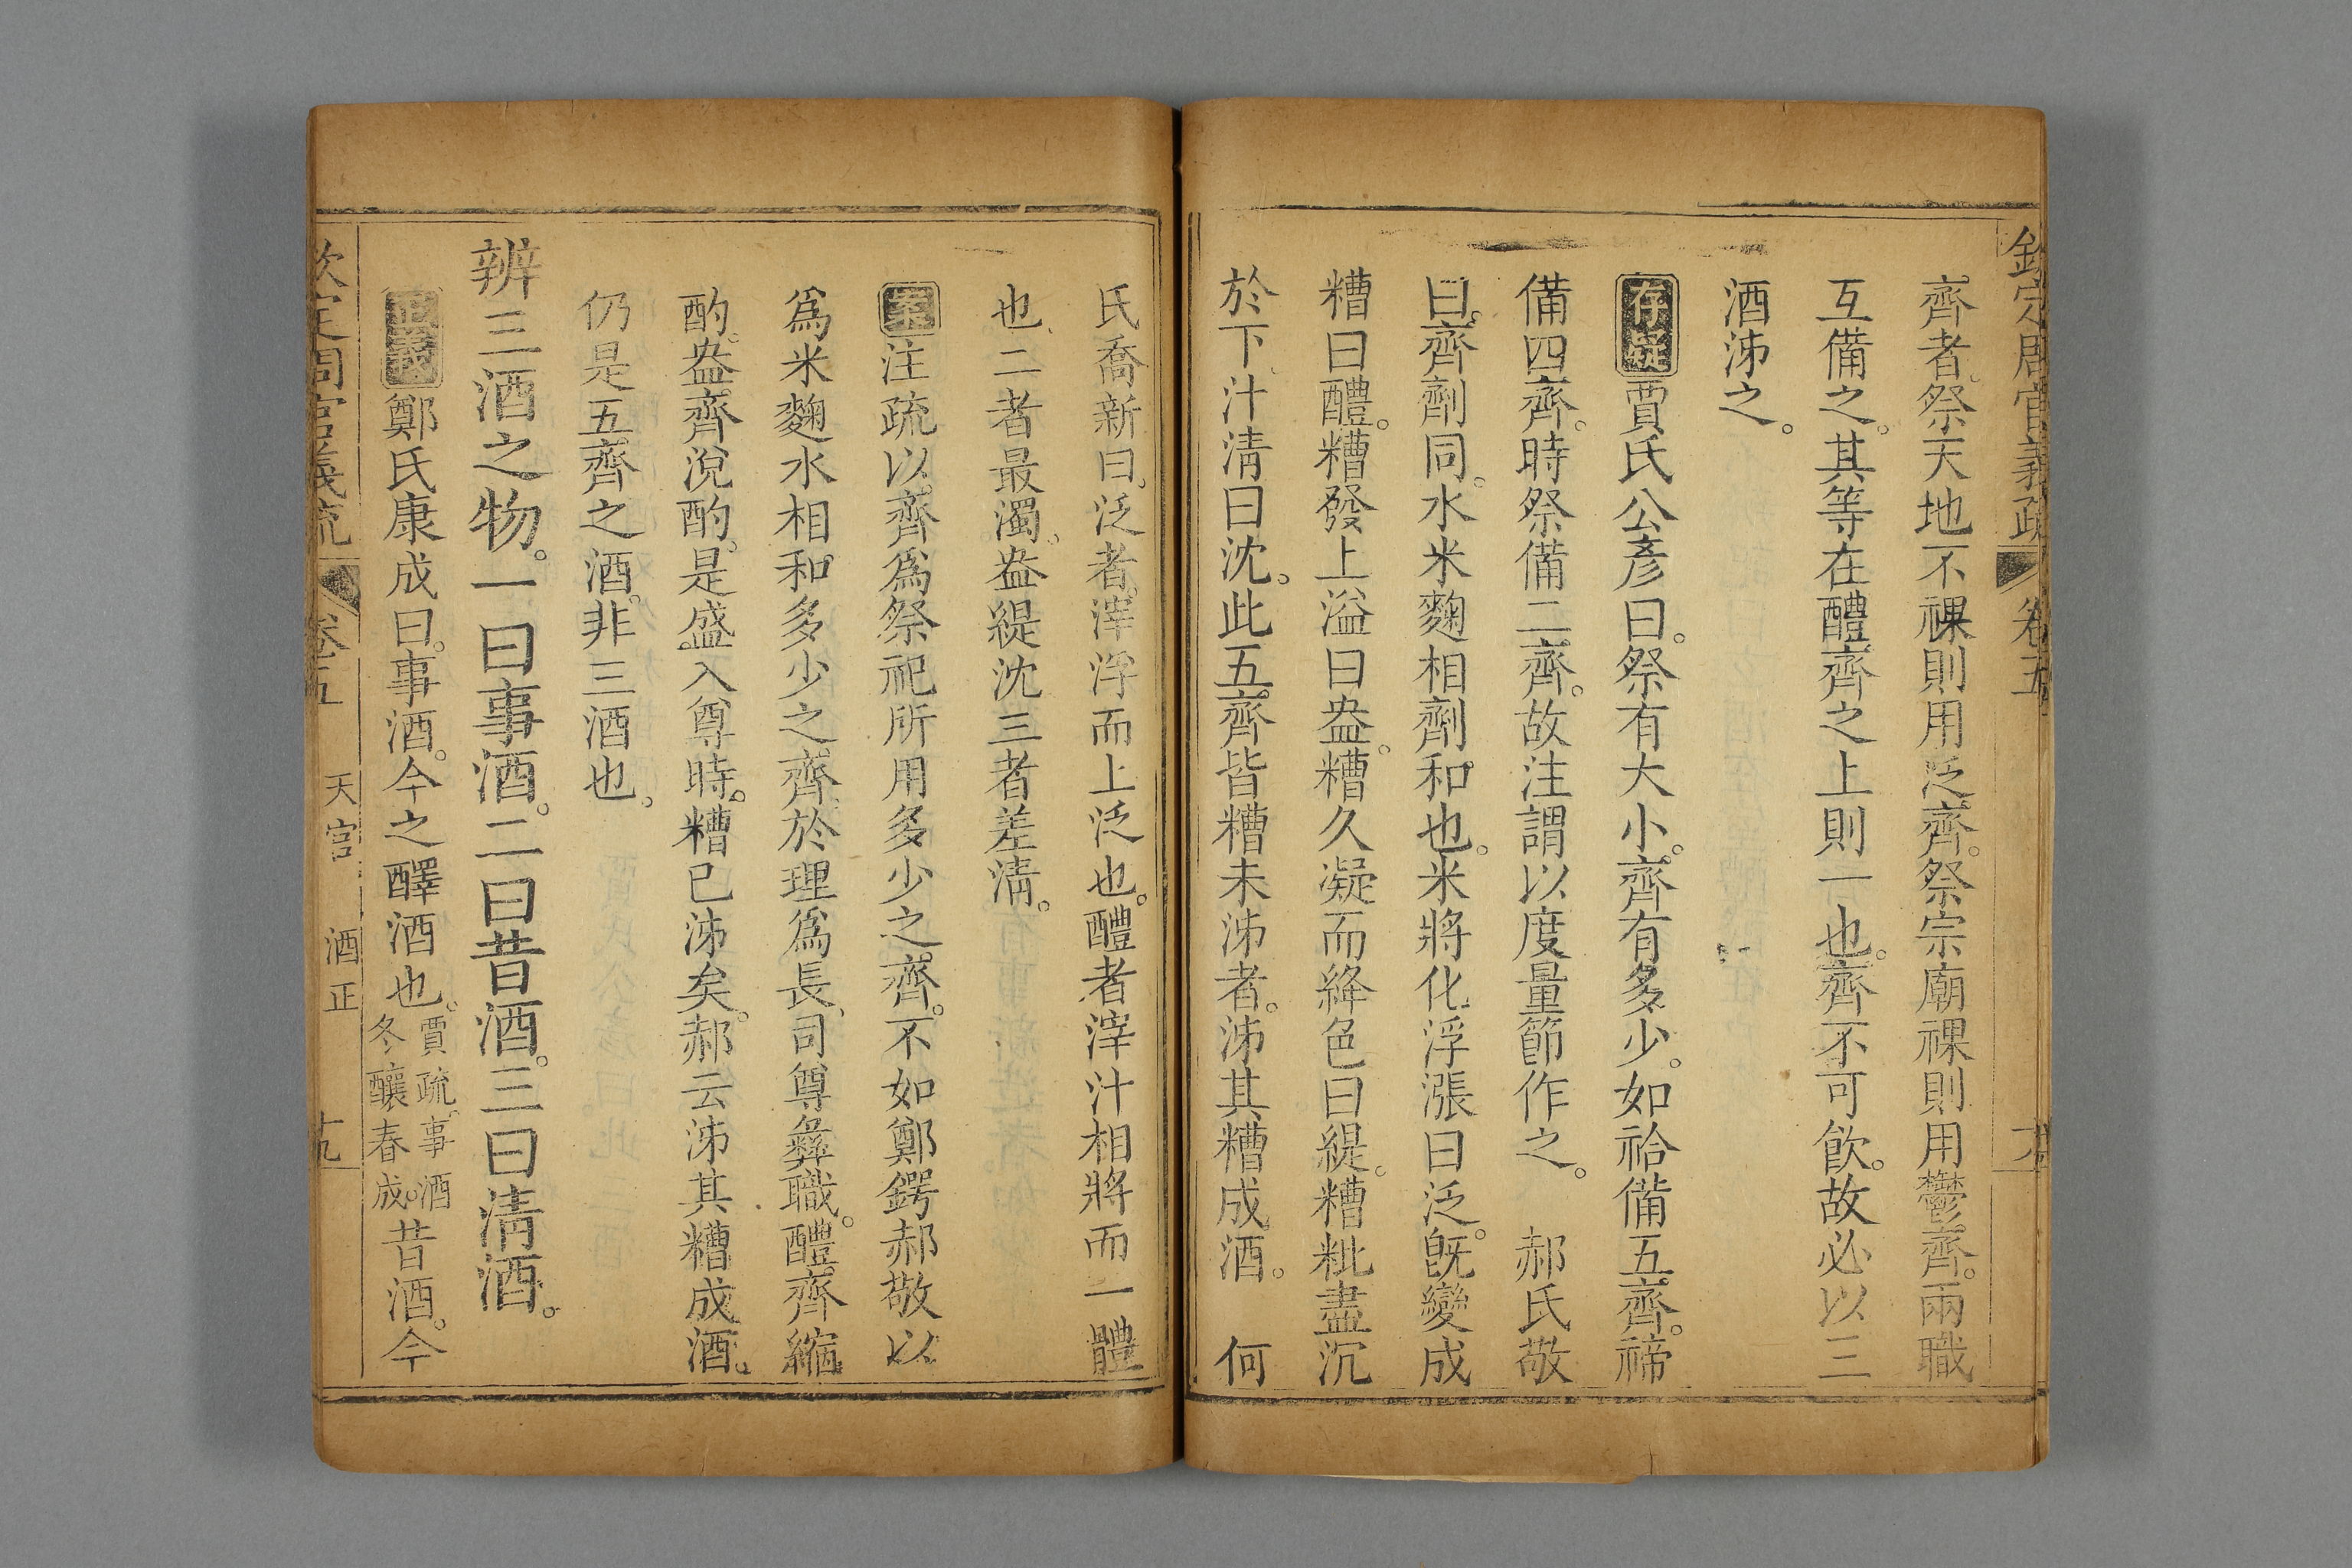 欽定周官義疏 卷五
齊者。祭天地不祼則用泛齊。祭宗廟祼則用鬱齊。兩職
互備之。其等在醴齊之上則一也。齊不可飲。故必以三
酒泲之。
存疑賈氏公彥曰。祭有大小。齊有多少。如祫備五齊。禘
備四齊。時祭備二齊。故注謂以度量節作之。 郝氏敬
曰。齊劑同。水米麴相劑和也。米將化浮漲曰泛。旣變成
糟曰醴。糟發上溢曰盎。糟久凝而絳色曰緹。糟粃盡沉
於下、汁淸曰沈。此五齊皆糟未泲者。泲其糟成酒。 何
氏喬新曰、泛者。滓浮而上泛也。醴者滓汁相將而一體
也、二者最濁。盎緹沈三者差淸。
案注疏以齊爲祭祀所用多少之齊。不如鄭鍔郝敬以
爲米麴水相和多少之齊、於理爲長、司尊彝職。醴齊縮
酌。盎齊涚酌。是盛入尊時。糟已泲矣。郝云泲其糟成酒。
仍是五齊之酒。非三酒也。
辨三酒之物。一曰事酒。二曰昔酒。三曰淸酒。
正義鄭氏康成曰。事酒。今之醳酒也。賈疏。事酒冬釀春成。昔酒。今
欽定周官義疏 卷五 天官 酒正 十九